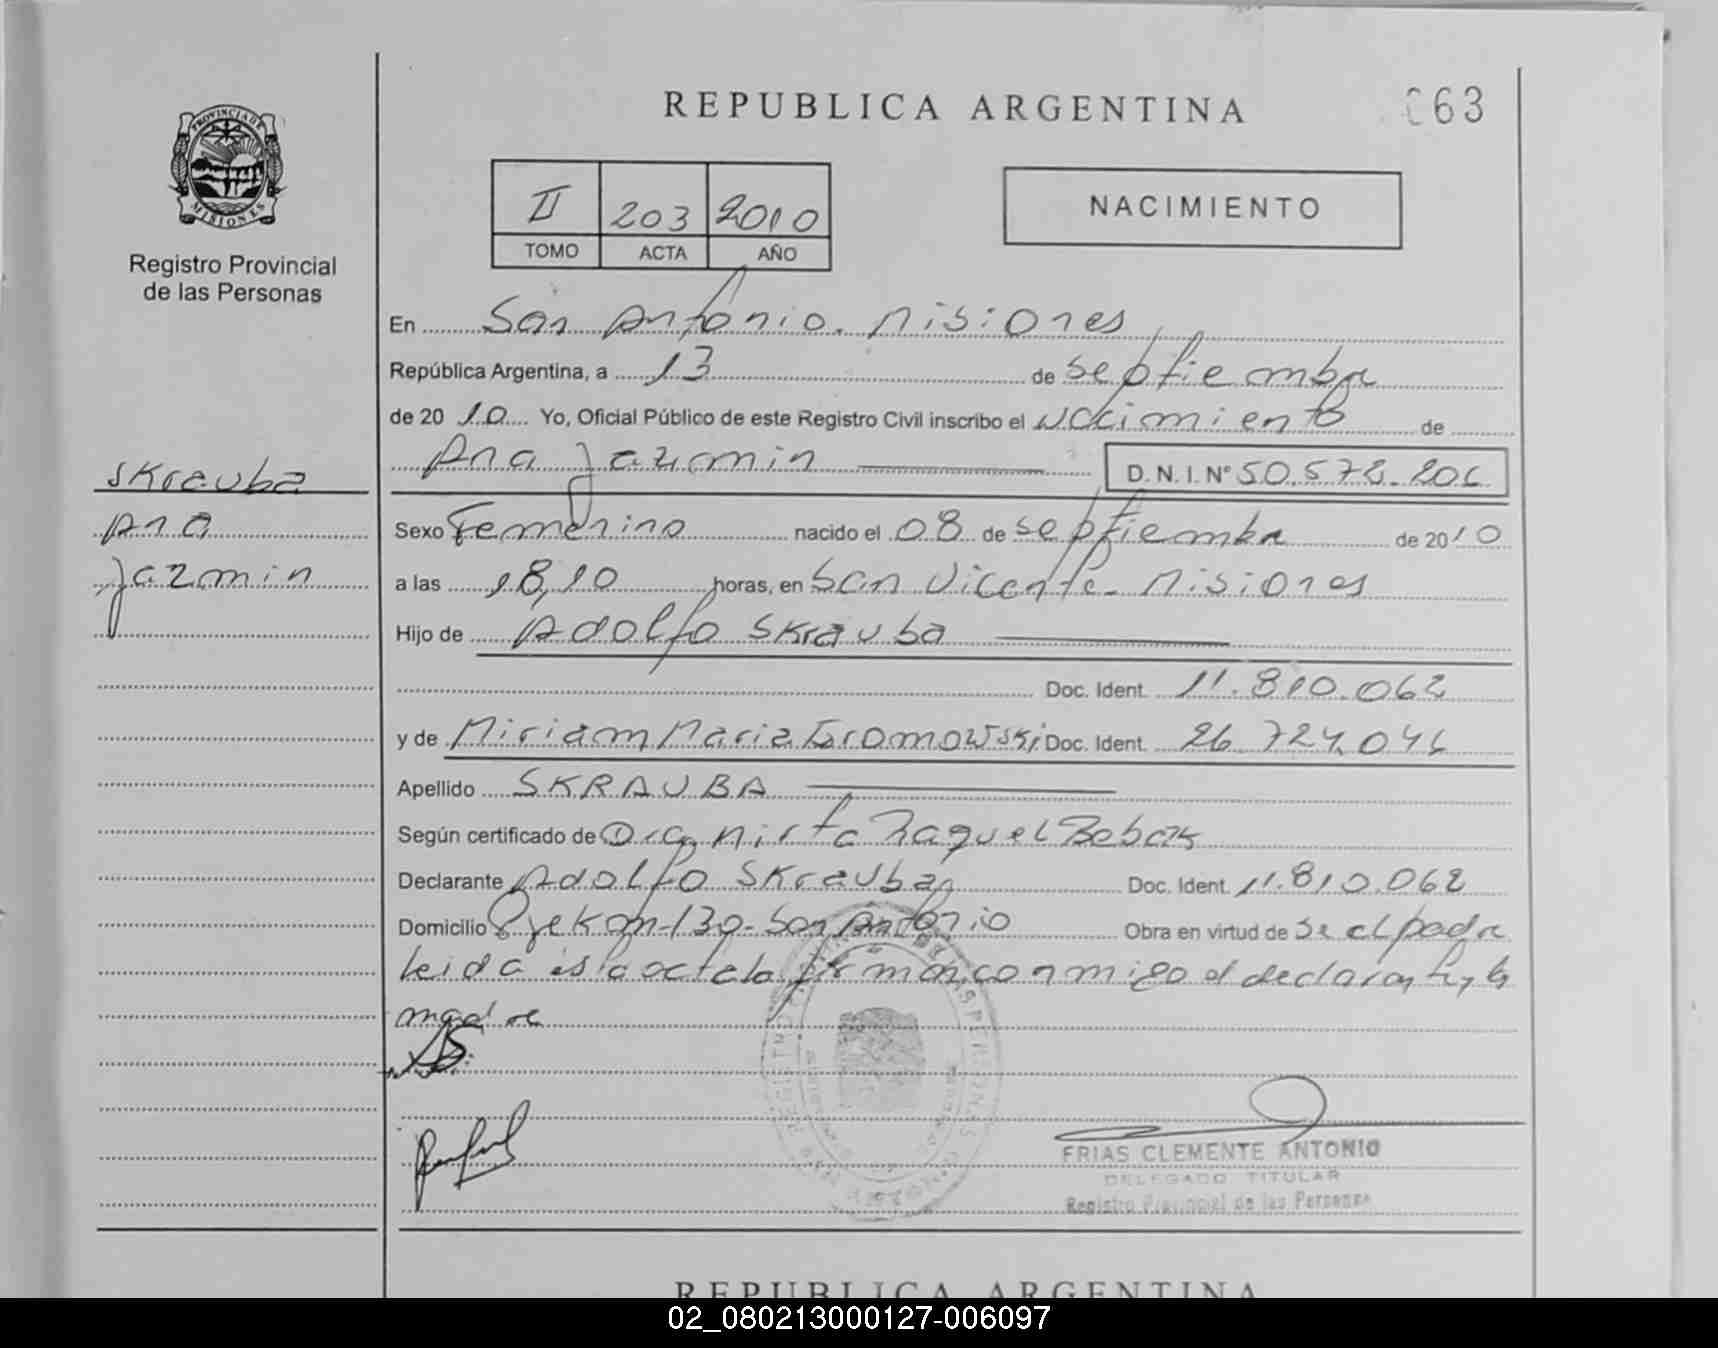 REPUBLICA ARGENTINA
063
PROVINCIA DE
MISIONES
Registro Provincial
de las Personas
II 203 2010
TOMO ACTA AÑO
NACIMIENTO
En San Antonio. Misiones
República Argentina, a 13 de septiembre
de 2010 Yo, Oficial Público de este Registro Civil inscribo el nacimiento de
Ana Jazmin D.N.I. Nº 50.572.206
Skrauba
Ana
Jazmin
Sexo Femenino nacido el 08 de septiembre de 2010
a las 18,10 horas, en San Vicente - Misiones
Hijo de Adolfo Skrauba
Doc. Ident. 11.810.062
y de Miriam Maria Gromowski Doc. Ident. 26.724.046
Apellido SKRAUBA
Según certificado de Dra. Mirta Raquel Bobak
Declarante Adolfo Skrauba Doc. Ident. 11.810.062
Domicilio 130 - San Antonio Obra en virtud de Se el padre
leida es la acta la firman conmigo el declarante y la
madre
FRIAS CLEMENTE ANTONIO
DELEGADO TITULAR
Registro Provincial de las Personas
REPUBLICA ARGENTINA
02_080213000127-006097